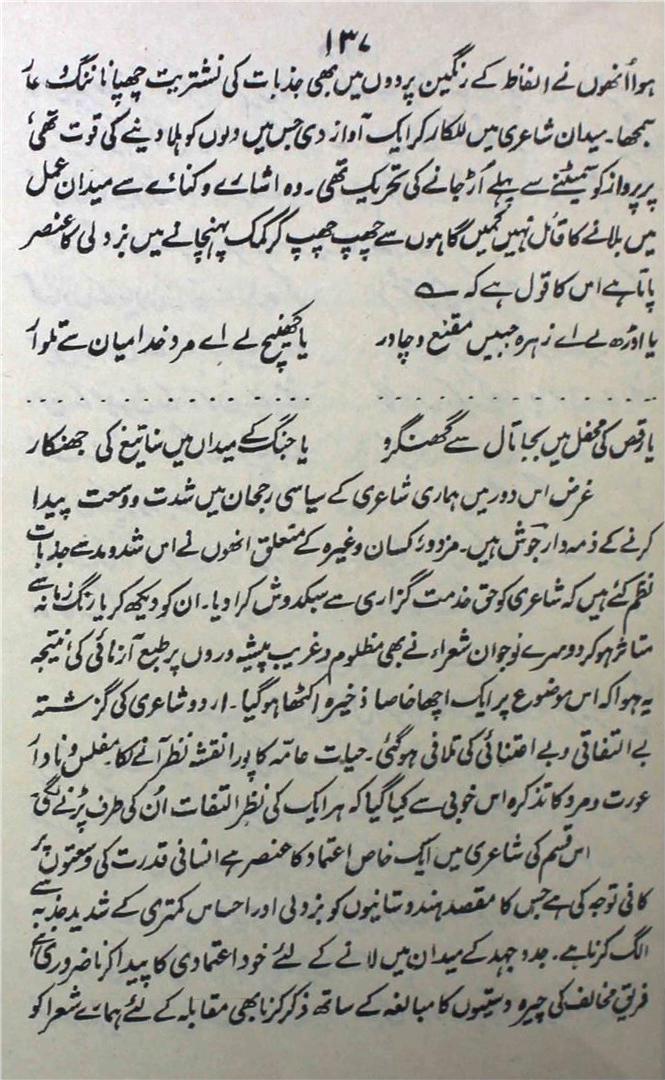 ۱۳۷
ہوا اُنھوں نے الفاظ کے رنگین پردوں میں بھی جذبات کی نشتریت چھپانا ننگ و عار
سمجھا۔ میدان شاعری میں للکار کر ایک آواز دی جس میں دلوں کو ہلا دینے کی قوت تھی،
پر پرواز کو سمیٹنے سے پہلے اُڑ جانے کی تحریک تھی۔ وہ اشارے و کنائے سے میدان عمل
میں بلانے کا قائل نہیں کمیں گاہوں سے چھپ چھپ کر کمک پہنچانے میں بزدلی کا عنصر
پاتا ہے اس کا قول ہے کہ ؎
یا اوڑھ لے اے زہرہ جبیں مقنع و چادر یا کھینچ لے اے مرد خدا میان سے تلوار
. . . . . . . . . . . . . . . . . . . . . . . .
یا رقص کی محفل میں بجا تال سے گھنگرو یا جنگ کے میداں میں سنا تیغ کی جھنکار
غرض اس دور میں ہماری شاعری کے سیاسی رجحان میں شدت و وسعت پیدا
کرنے کے ذمہ دار جوش ہیں۔ مزدور، کسان وغیرہ کے متعلق انھوں نے اس شدومد سے جذبات
نظم کئے ہیں کہ شاعری کو حق خدمت گزاری سے سبکدوش کرا دیا۔ ان کو دیکھ کر یا رنگ زمانہ سے
متاثر ہو کر دوسرے نوجوان شعراء نے بھی مظلوم و غریب پیشہ وروں پر طبع آزمائی کی، نتیجہ
یہ ہوا کہ اس موضوع پر ایک اچھا خاصا ذخیرہ اکٹھا ہو گیا۔ اردو شاعری کی گزشتہ
بے التفاتی و بے اعتنائی کی تلافی ہو گئی۔ حیات عامّہ کا پورا نقشہ نظر آنے لگا۔ مفلس و نادار
عورت و مرد کا تذکرہ اس خوبی سے کیا گیا کہ ہر ایک کی نظر التفات اُن کی طرف پڑنے لگی۔
اس قسم کی شاعری میں ایک خاص اعتماد کا عنصر ہے انسانی قدرت کی وسعتوں پر
کافی توجہ کی ہے جس کا مقصد ہندوستانیوں کو بزدلی اور احساس کمتری کے شدید جذبہ سے
الگ کرنا ہے۔ جدوجہد کے میدان میں لانے کے لئے خود اعتمادی کا پیدا کرنا ضروری ہے
فریق مخالف کی چیرہ دستیوں کا مبالغہ کے ساتھ ذکر کرنا بھی مقابلہ کے لئے ہمارے شعرا کو